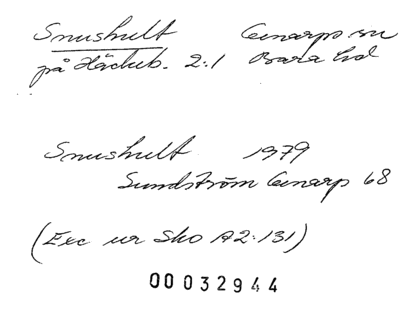 Snushult Genarps sn
på Häckeb. 2:1 Bara hd
Snushult 1979
Sundström Genarp 68
(Exc ur Sko A2:131)
00032944